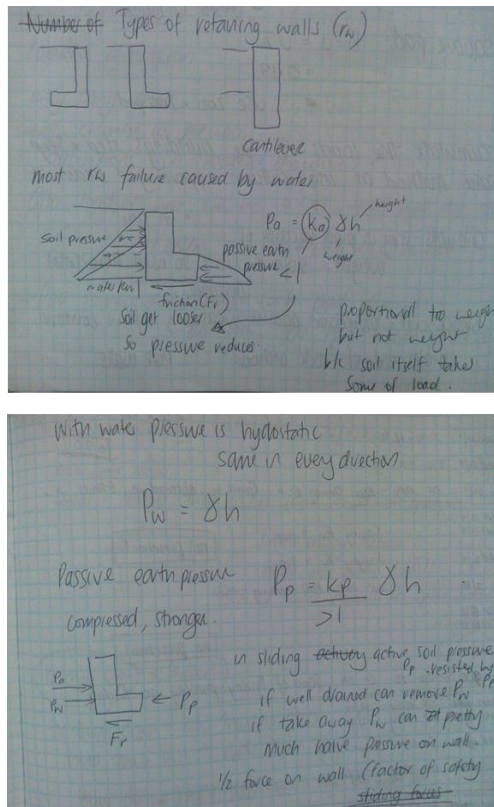 Number of Types of retaning walls (rw)
cantilever
most rw failure caused by water
Pa = ka γh
height
weight
<1
soil pressure
passive earth
pressure
water pen
friction (Fr)
Soil get looser
so pressure reduces
proportional to weight
but not weight
b/c soil itself takes
some of load.
with water pressure is hydostatic
same in every direction
Pw = γh
Passive earth pressure
compressed, stronger.
Pp = kp γh
>1
Pa
Pw
Pp
Fr
in sliding activey active soil pressure
Pp resisted by
Pp
if well drained can remove Pw
if take away Pw can pretty
much halve passive on wall.
1/2 force on wall (factor of safety
sliding forces